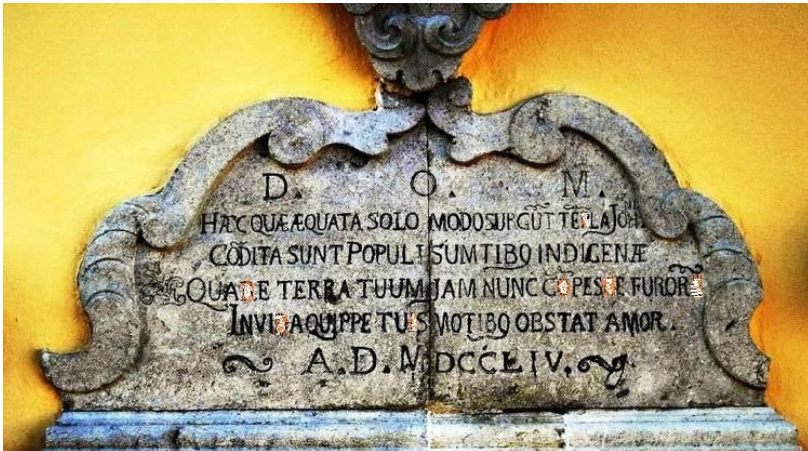 D. O. M.
HÆC QUÆ ÆQUATA SOLO MODO SURGŪT TĒPLA JOH̄.
CŌDITA SUNT POPULI SUMTIBQ INDIGENÆ
QUARE TERRA TUUM JAM NUNC CŌPESCE FURORĒ
INVIDA QUIPPE TUIS MOTIBQ OBSTAT AMOR.
A.D. MDCCLIV.